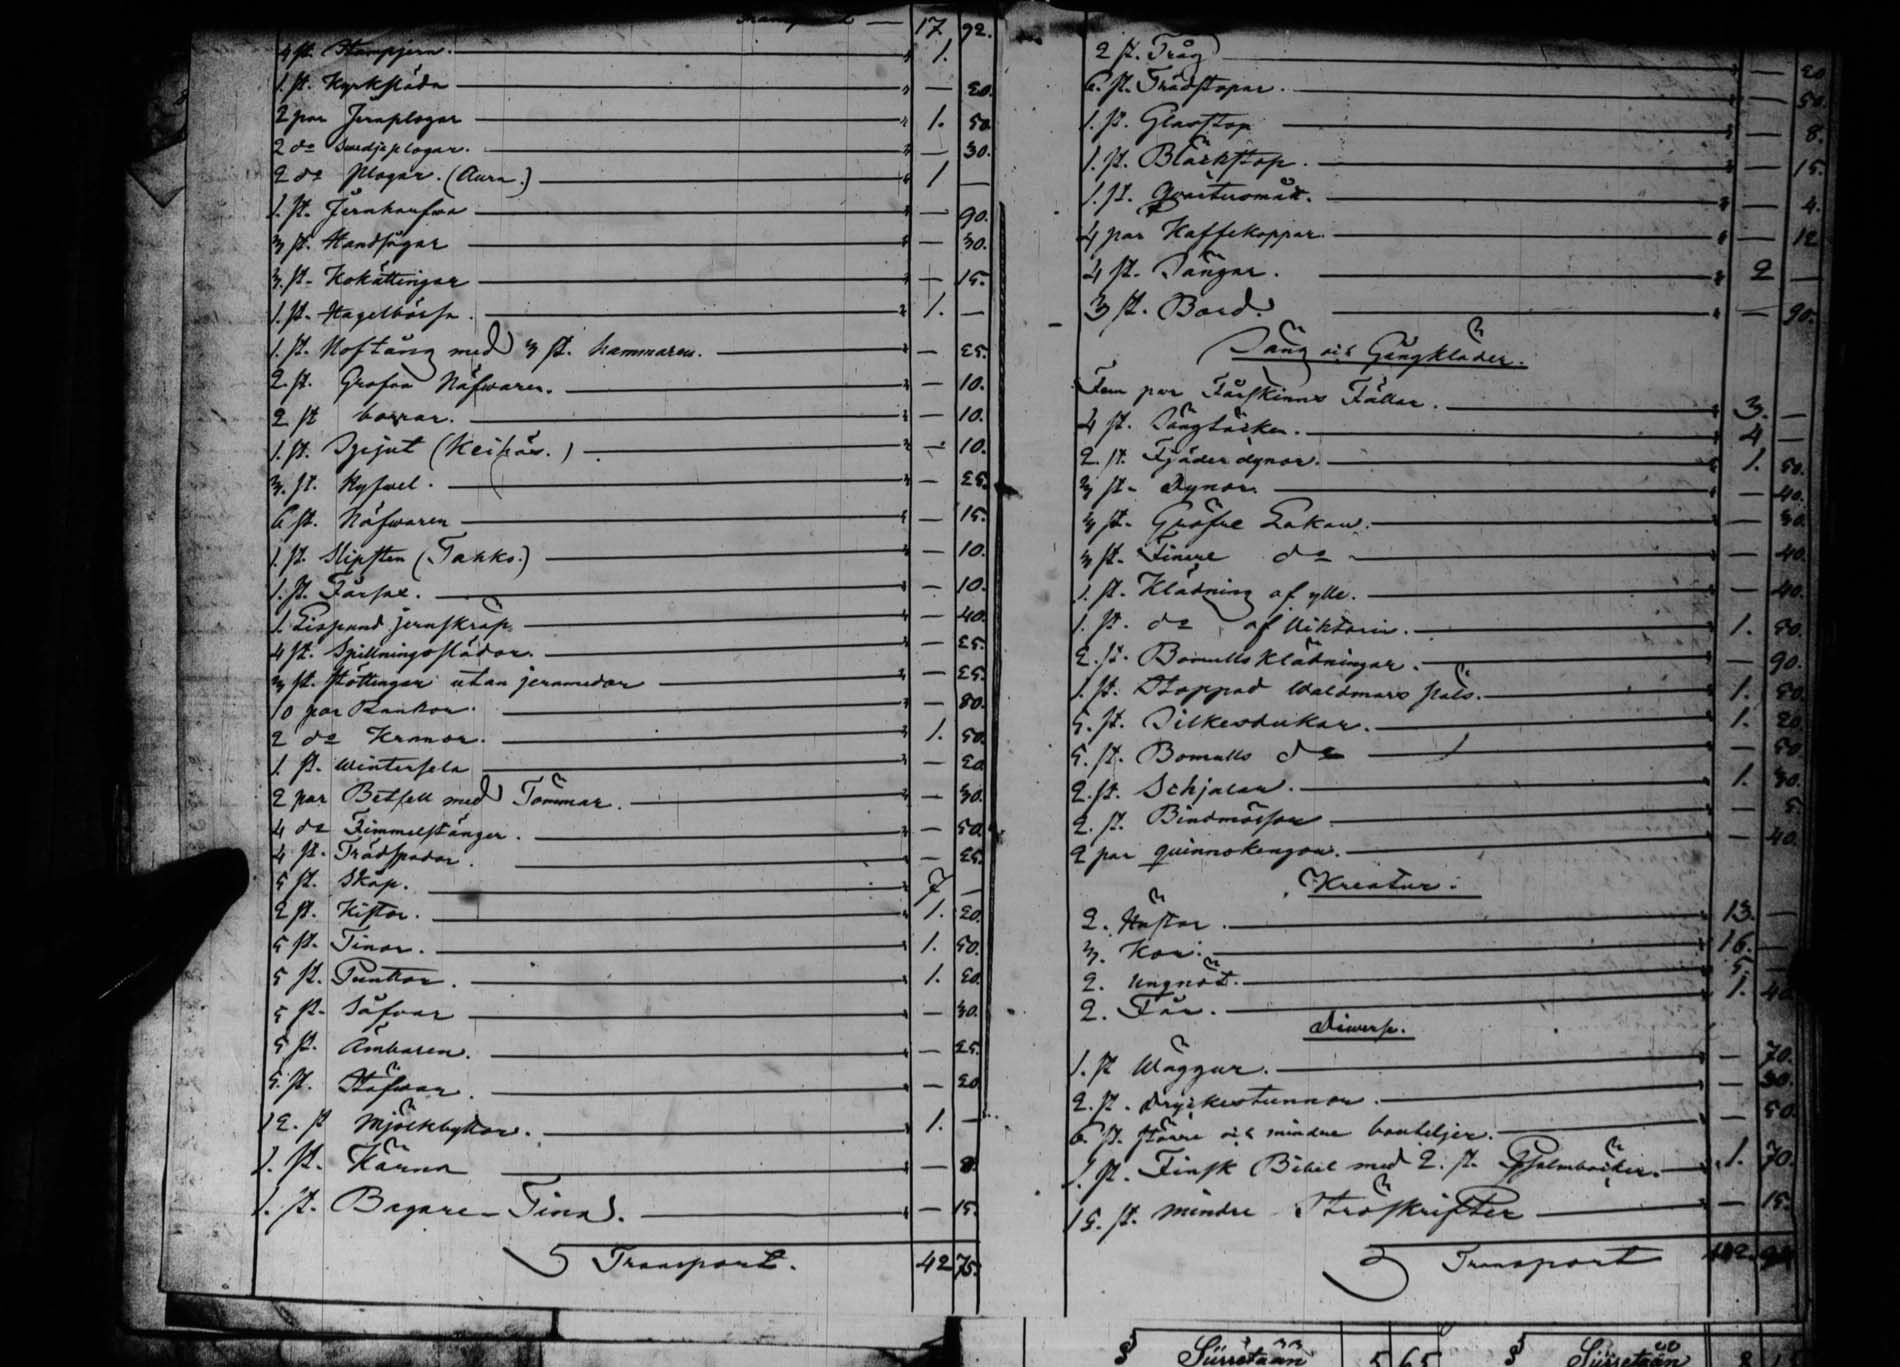 Transport — 17 92.
4 st. Stampjern. — 1.
1. st. Kyrksläda — 20.
2 par Jernplogar — 1. 50
2 do Swedjeplogar. — 30.
2 do Plogar. (Aura.) — 1 —
1. st. Jernharfwa — 90.
3 st. Handsågar — 30.
3. st. Kokättingar — 15.
1. st. Hagelbössa. — 1. —
1. st. Hoftång med 3 st. hammaren. — 25.
2. st. Grofva Näfwaren. — 10.
2 st borrar. — 10.
1. st. Spjut (Keihäs.) — 10.
3. st. Hyfwel. — 25.
6 st. Näfwaren — 15.
1. st. Slipsten (Tahko.) — 10.
1. st. Fårsax. — 10.
1. Lispund jernskrap — 40.
4 st. Spillningsslädor. — 25.
3 st. Stöttingar utan jernmedar — 25.
10 par Rankor. — 80.
2 do Kranor. — 1. 50.
1. st. Wintersela — 20
2 par Betsell med Tömmar. — 30.
4 do Fimmelstänger. — 50
4 st. Trädspadar. — 25.
5 st. Skåp. — 7 —
2 st. Kistor. — 1. 20.
5 st. Tinor. — 1. 50.
5 st. Punkor. — 1. 20.
5 st. Såfvar — 30.
5 st. Ämbaren. — 25.
5. st. Stäfwar. — 20
12. st Mjölkbyttor. — 1. —
1. st. Kärna — 8.
1. st. Bagare-Tina. — 15.
Transport. 42 75.
2 st. Tråg — 20
6. st. Trädstopar. — 50.
1. st. Glasstop — 8.
1. st. Bläckstop. — 15.
1. st. Qvartersmått. — 4.
4 par Kaffekoppar. — 12
4 st. Sängar. — 2 —
3 st. Bord. — 90.
Säng och Gångkläder.
Fem par Fårskinns Fällar. — 3. —
4 st. Sängtäcken. — 4 —
2. st. Fjäderdynor. — 1. 50.
3 st. Dynor. — 40.
3 st. Gröfre Lakan. — 30.
3 st. Finare do — 40.
1. st. Klädning af ylle. — 40.
1. st. do af Viktoria. — 1. 50.
2. st. Bomulls klädningar. — 90.
1. st. Stoppad Waldmars päls. — 1. 50.
5. st. Silkesdukar. — 1. 20.
5. st. Bomulls do — 50
2. st. Schjalar. — 1. 30.
2. st. Bindmössor — 5.
2 par quinnokängor. — 40.
Kreatur.
2. Hästar. — 13. —
3. Kor. — 16. —
2. Ungnöt. — 5. —
2. Får. — 1. 40
Diverse.
1. st Waggur. — 70.
2. st. Dryckestunnor. — 30.
6. st. större och mindre bouteljer. — 50.
1. st. Finsk Bibel med 2. st. Psalmböcker. — 1. 70.
15. st. mindre Ströskrifter — 15.
Transport 102. 94
§ Siirretään 5 65 § Siirretään